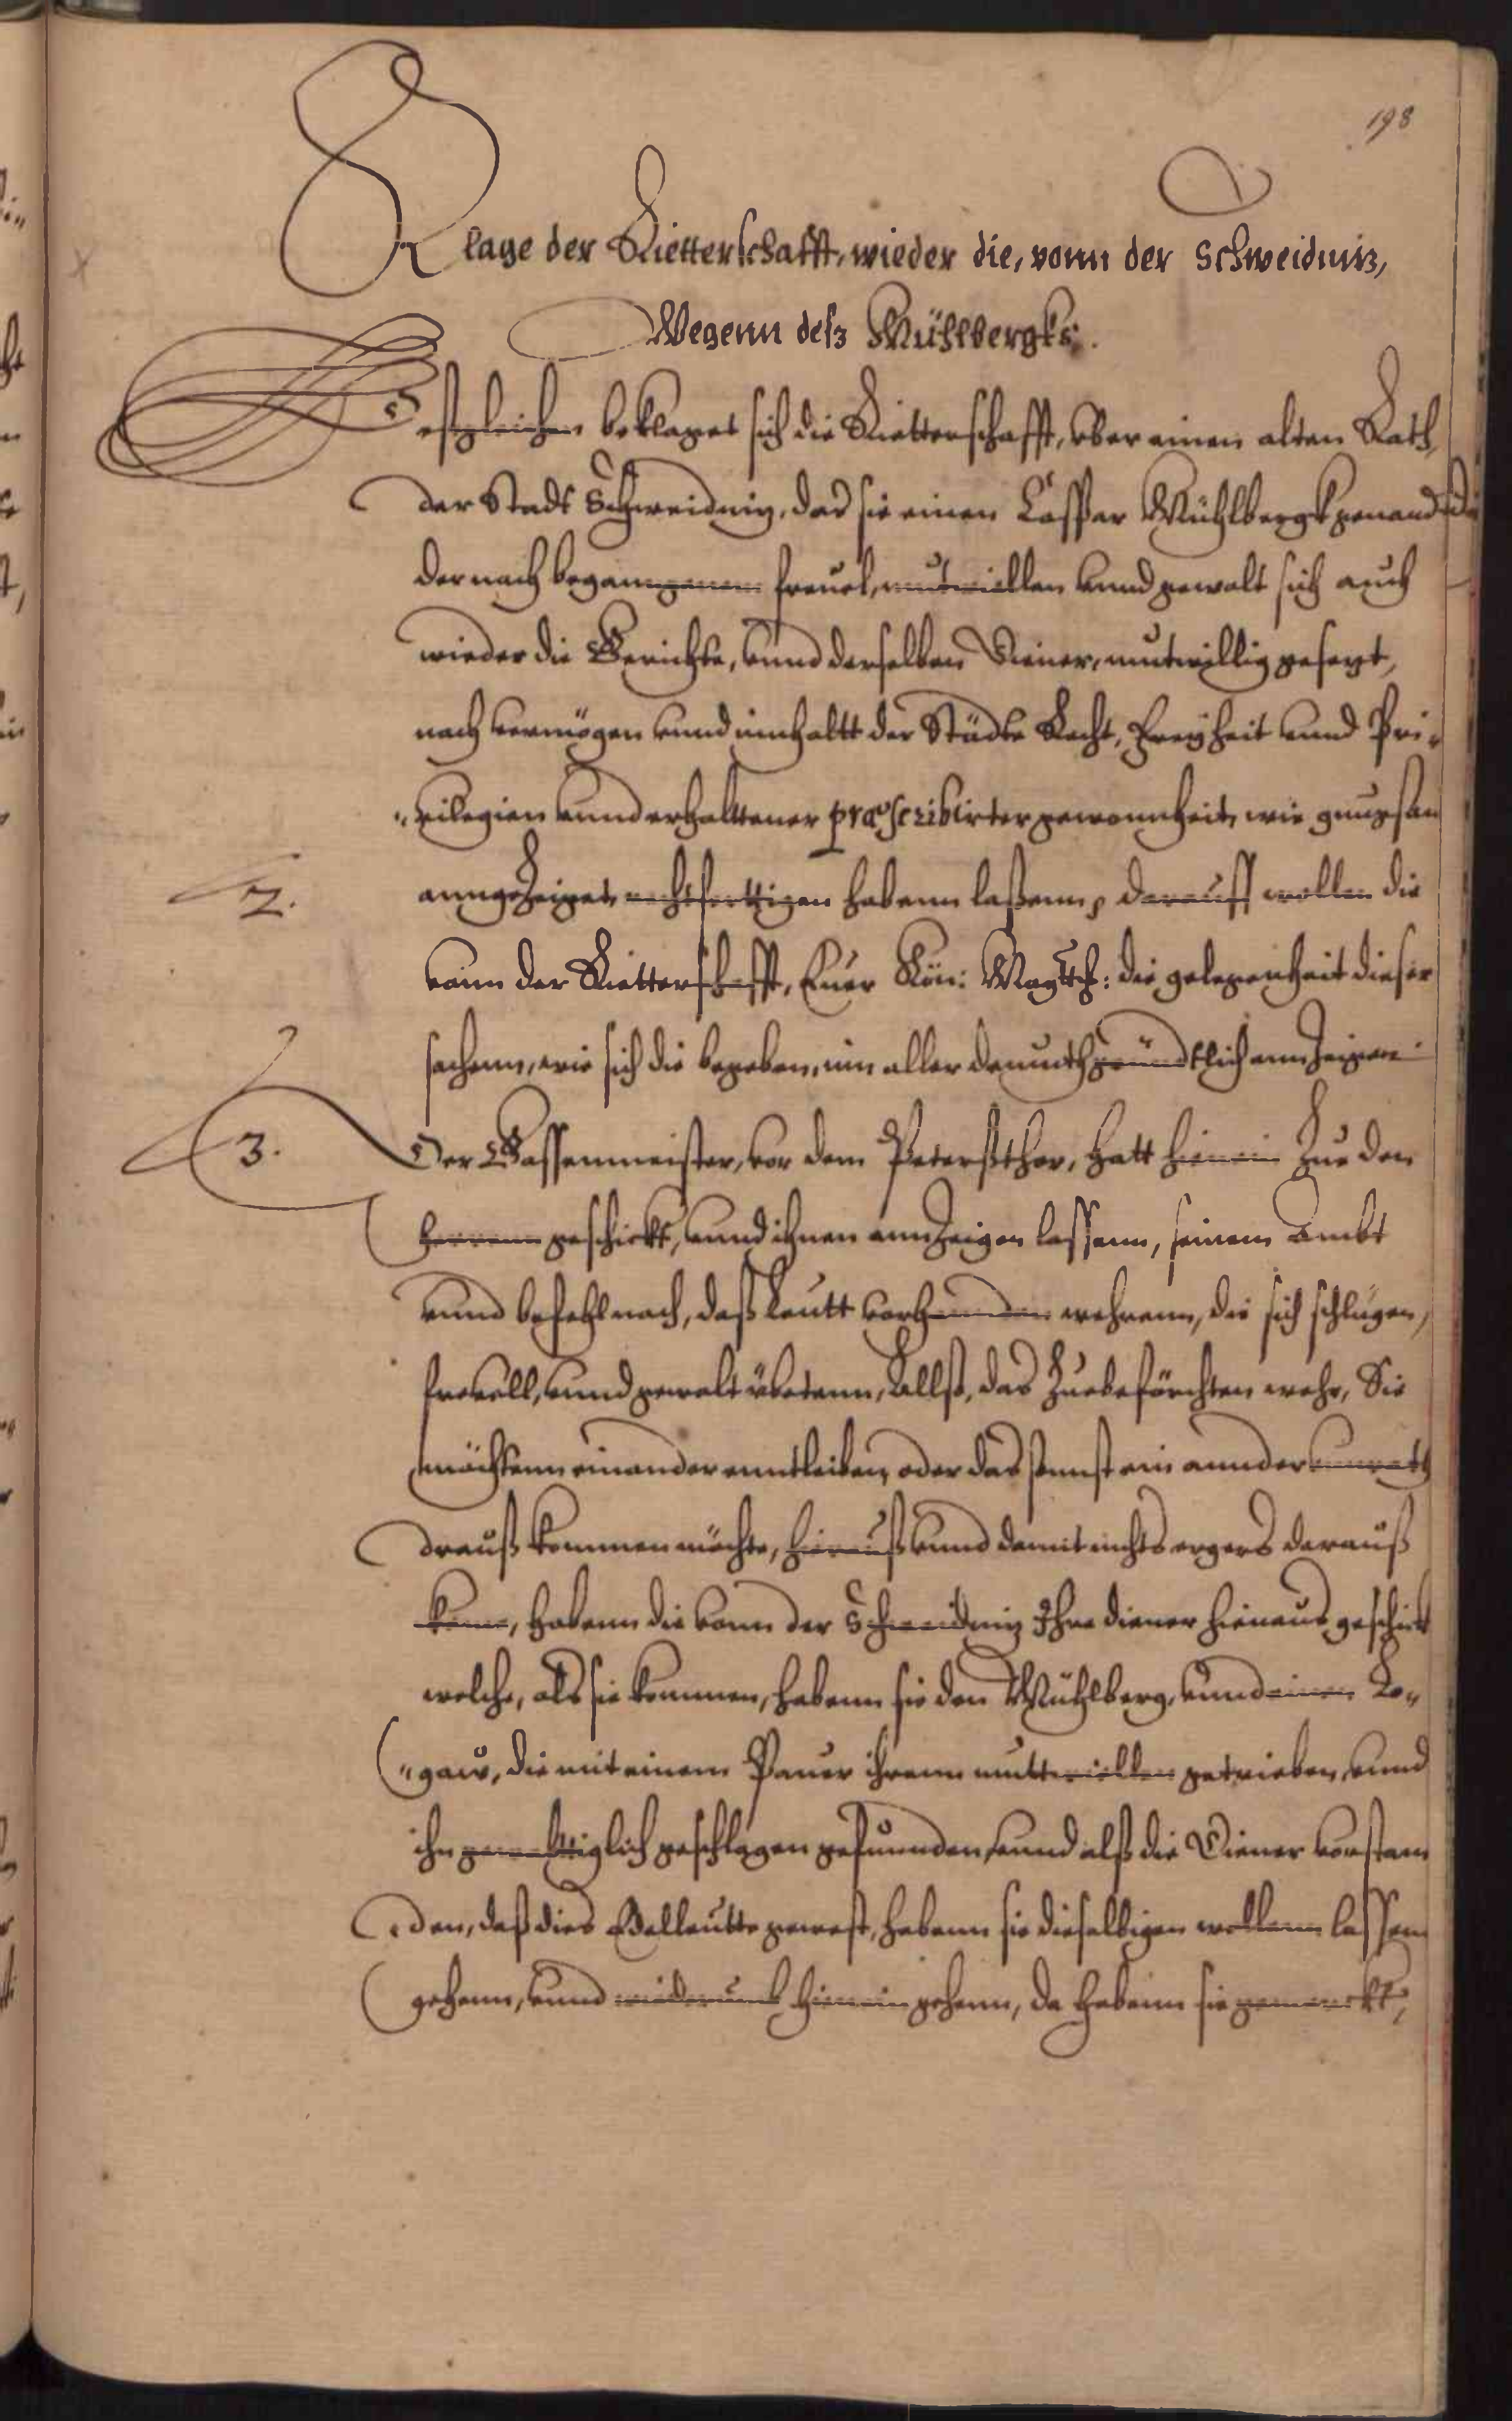 198
Klage der Rietterschafft, wieder die, vonn der Schweidnitz,
Wegenn deß Mühlbergks.
Deßgleichen beklaget sich die Rietterschafft, vber einen alten Rath,
der Stadt Schweidnitz, das sie einen Casper Mühlbergk genandt
der nach begangenem freuel, mutwillen vnnd gewalt sich auch
wieder die Gerichte, vnnd derselben Diener, mutwillig gesetzt,
nach vermögen vnnd innhaltt der Städte Recht, Freyheit vnnd Pri-
"vilegien vnnd erhalttener præscribirter gewonnheit, wie gnugsam
2. anngezeiget, rechtferttigen habenn laßenn, darauff wollen die
vonn der Rietterschafft, Euer Kön: Maytth: die gelegenheit dieser
sachenn, wie sich die begeben, inn aller demuth gründtlich annzeigen
3. Der Gassenmeister, vor dem Petersthor, hatt hienein Zue den
Herrenn geschickt, vnnd ihnen annzeigen lassenn, seinem Ambt
vnnd befehl nach, daß Leutt vorhanden wehrenn, die sich schlügen,
frevell, vnnd gewalt übetenn, Allß, das Zuebefürchten wehr, Sie
möchtenn einander enntleiben, oder das sunst ein annder vnrath
drauß kommen möchte, hierauß vnnd damit nichts ergers darauß
keme, habenn die vonn der Schweidnitz Ihre diener hienaus geschickt
welche, als sie kommen, habenn sie den Mühlberg, vnnd einen Lo"
"gaw, die mit einem Pauer ihrenn muttwillen getrieben, vnnd
ihn geweltiglich geschlagen gefunnden, vnnd alß die Diener verstan
"den, daß dies Edelleutte gewest, habenn sie dieselbigen wollenn lassen
gehenn, vnnd widerumb hienein gehenn, da habenn sie gemerckt,